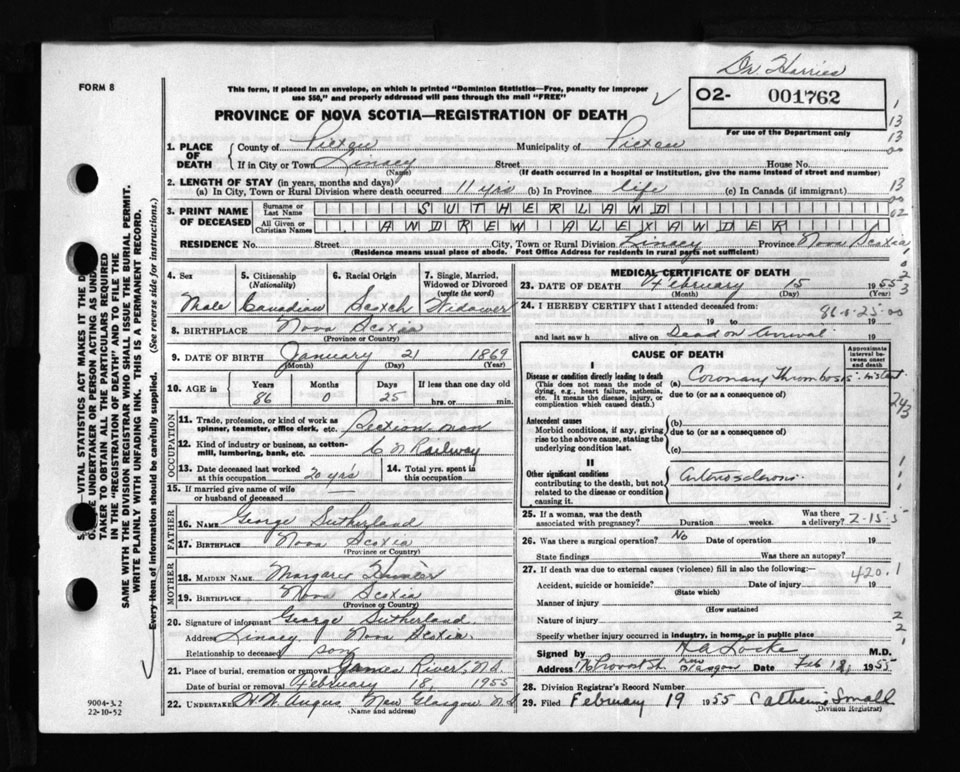 Dr Harries
FORM 8
This form, if placed in an envelope, on which is printed "Dominion Statistics—Free, penalty for improper
use $50," and properly addressed will pass through the mail "FREE"
O2- 001762
For use of the Department only
PROVINCE OF NOVA SCOTIA—REGISTRATION OF DEATH
1. PLACE OF DEATH County of Pictou Municipality of Pictou
If in City or Town Linacy (Name) Street House No.
(If death occurred in a hospital or institution, give the name instead of street and number)
2. LENGTH OF STAY (in years, months and days)
(a) In City, Town or Rural Division where death occurred 11 yrs (b) In Province life (c) In Canada (if immigrant)
3. PRINT NAME OF DECEASED Surname or Last Name SUTHERLAND
All Given or Christian Names ANDREW ALEXANDER
RESIDENCE No. Street City, Town or Rural Division Linacy Province Nova Scotia
(Residence means usual place of abode. Post Office Address for residents in rural parts not sufficient)
4. Sex Male
5. Citizenship (Nationality) Canadian
6. Racial Origin Scotch
7. Single, Married, Widowed or Divorced (write the word) Widower
8. BIRTHPLACE Nova Scotia
(Province or Country)
9. DATE OF BIRTH January 21 1869
(Month) (Day) (Year)
10. AGE IN Years 86 Months 0 Days 25 If less than one day old hrs. or min.
OCCUPATION
11. Trade, profession, or kind of work as spinner, teamster, office clerk, etc. Section man
12. Kind of industry or business, as cotton-mill, lumbering, bank, etc. C N Railway
13. Date deceased last worked at this occupation 20 yrs
14. Total yrs. spent in this occupation
15. If married give name of wife or husband of deceased
FATHER
16. NAME George Sutherland
17. BIRTHPLACE Nova Scotia
(Province or Country)
MOTHER
18. MAIDEN NAME Margaret
19. BIRTHPLACE Nova Scotia
(Province or Country)
20. Signature of informant George Sutherland
Address Linacy Nova Scotia
Relationship to deceased son
21. Place of burial, cremation or removal James River, N.S.
Date of burial or removal February 18, 1955
22. UNDERTAKER H. W. Angus New Glasgow N S
(Name and address)
MEDICAL CERTIFICATE OF DEATH
23. DATE OF DEATH February 15 1955
(Month) (Day) (Year)
24. I HEREBY CERTIFY that I attended deceased from:
19 to 19
and last saw h alive on Dead on arrival 19
CAUSE OF DEATH
Approximate interval between onset and death
I
Disease or condition directly leading to death (a) Coronary Thrombosis instant
(This does not mean the mode of dying, e.g., heart failure, asthenia, etc. It means the disease, injury, or complication which caused death.)
due to (or as a consequence of)
Antecedent causes (b)
Morbid conditions, if any, giving rise to the above cause, stating the underlying condition last.
due to (or as a consequence of)
(c)
II
Other significant conditions contributing to the death, but not related to the disease or condition causing it. arteriosclerosis
25. If a woman, was the death associated with pregnancy? Duration weeks. Was there a delivery? 2-15-5
26. Was there a surgical operation? No Date of operation
State findings Was there an autopsy?
27. If death was due to external causes (violence) fill in also the following:— 420.1
Accident, suicide or homicide? Date of injury 19
(State which)
Manner of injury
(How sustained
Nature of injury
Specify whether injury occurred in industry, in home, or in public place
Signed by H A Locke M.D.
Address Provost St. New Glasgow Date Feb 18, 1955
28. Division Registrar's Record Number
29. Filed February 19 1955 Catherine Small
(Division Registrar)
VITAL STATISTICS ACT MAKES IT THE
UNDERTAKER OR PERSON ACTING AS
TAKER TO OBTAIN ALL THE PARTICULARS REQUIRED
IN THE "REGISTRATION OF DEATH" AND TO FILE THE
SAME WITH THE DIVISION REGISTRAR WHO SHALL ISSUE THE BURIAL PERMIT.
WRITE PLAINLY WITH UNFADING INK. THIS IS A PERMANENT RECORD.
Every item of information should be carefully supplied. (See reverse side for instructions.)
9004-3.2
22-10-52